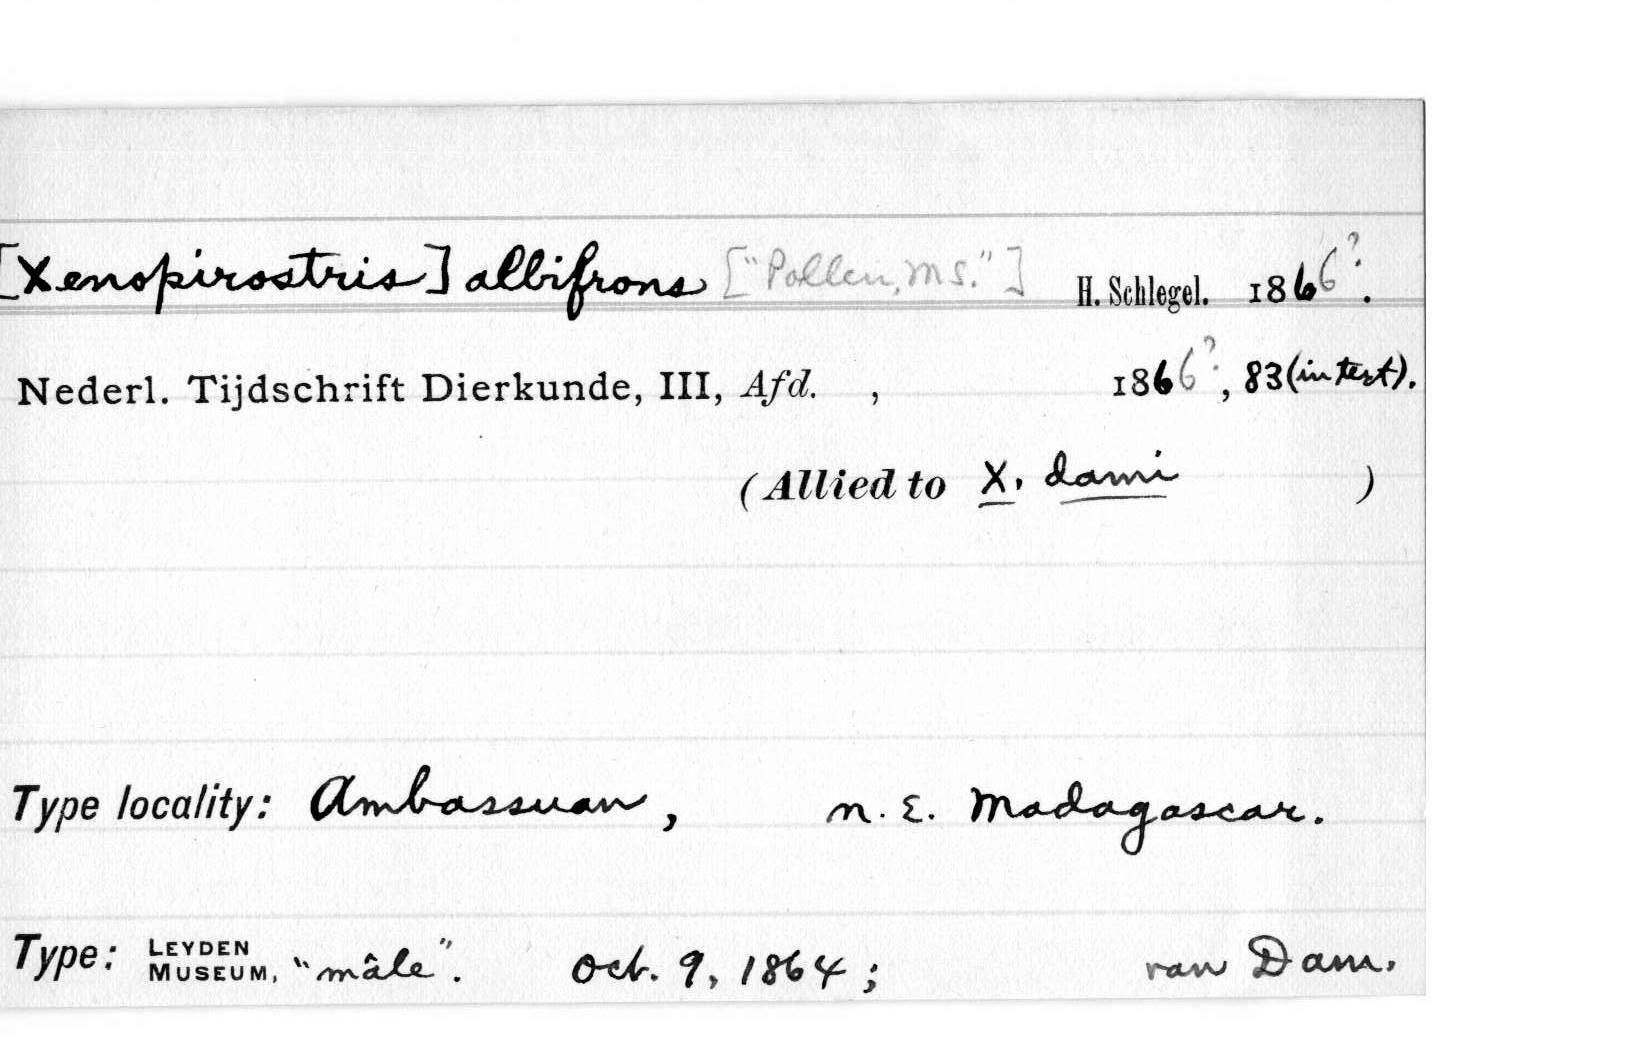 [Xenopirostris] albifrons ["Pollen, MS."] H. Schlegel. 1866?.
Nederl. Tijdschrift Dierkunde, III, Afd. , 1866?, 83 (in text).
(Allied to X. dami )
Type locality: Ambassuan, n. E. Madagascar.
Type: LEYDEN MUSEUM, "mâle". Oct. 9, 1864; van Dam.